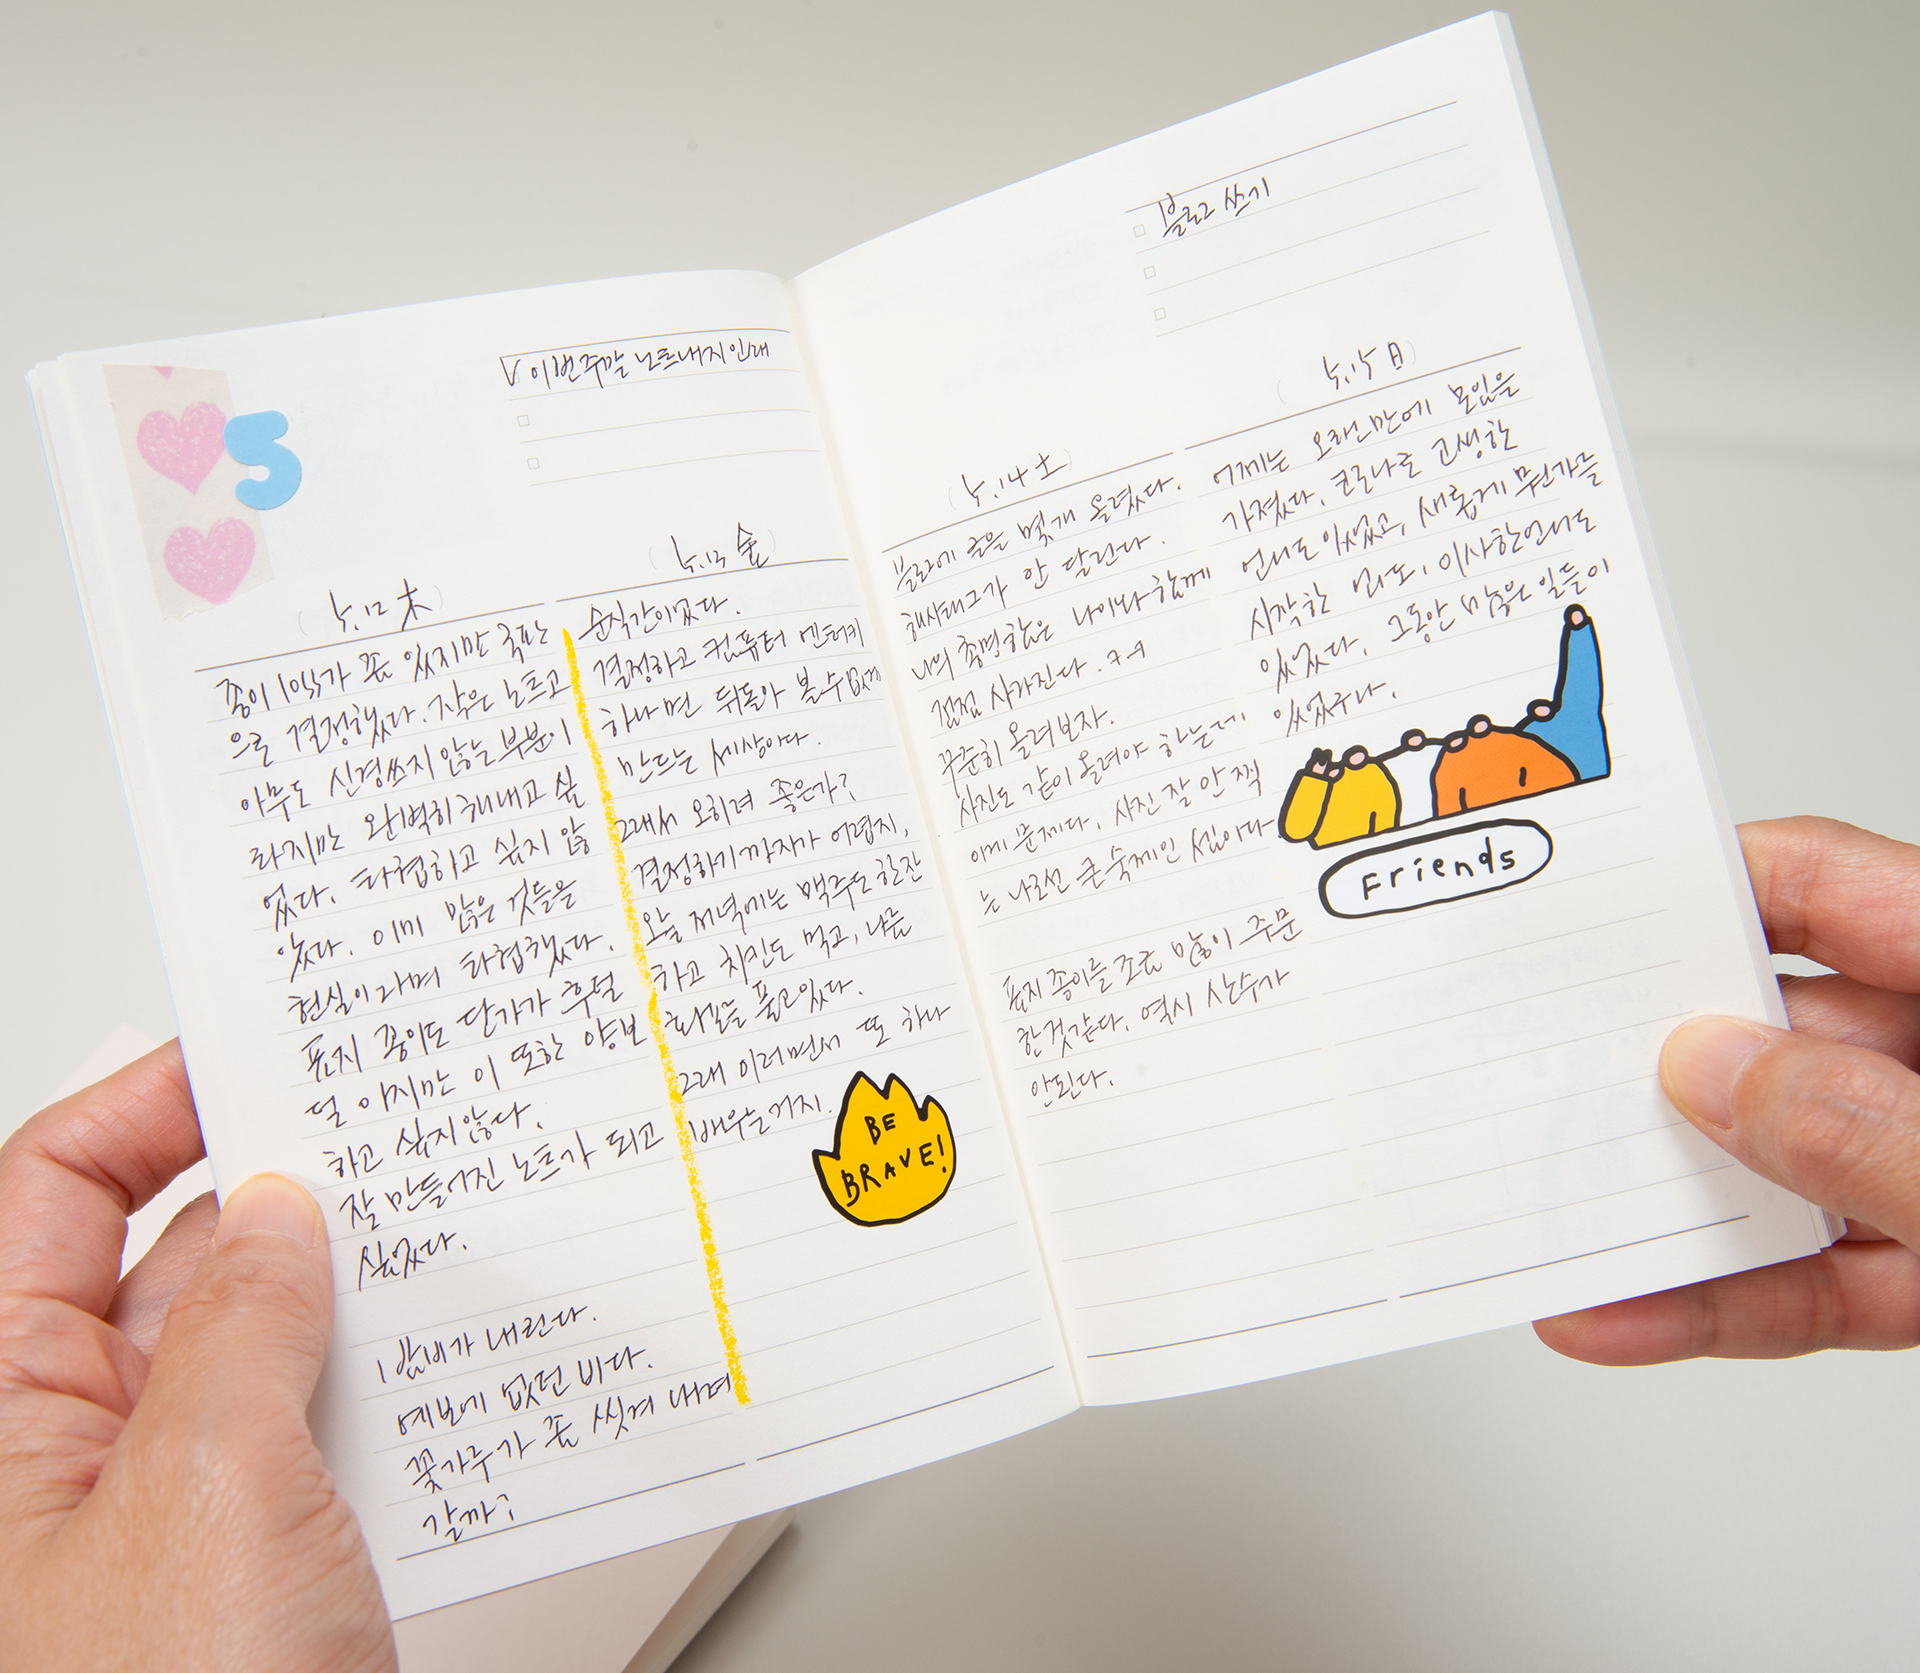 5
V 이번주말 노트내지인쇄
5.12 木
종이 1억가 쫌 있지만 국판
으로 결정했다. 작은 노트고
아무도 신경쓰지 않는 부분이
라지만 완벽히 해내고 싶
었다. 타협하고 싶지 않
았다. 이미 많은 것들을
현실이라며 타협했다.
표지 종이도 단가가 후덜
덜 이지만 이 또한 양보
하고 싶지않다.
잘 만들어진 노트가 되고
싶었다.
밤비가 내린다.
예보에 없던 비다.
꽃가루가 쫌 씻겨 내려
갈까?
5.13 金
순식간이었다.
결정하고 컴퓨터 엔터키
하나면 뒤돌아 볼수없게
만드는 세상이다.
그래서 오히려 좋은가?
결정하기까지가 어렵지,
오늘 저녁에는 맥주도 한잔
하고 치킨도 먹고, 나름
화를 풀고있었다.
그래 이러면서 또 하나
배우는거지.
BE
BRAVE!
블로그 쓰기
5.14 土
블로그에 글을 몇개 올렸다.
해시태그가 안 달린다.
나의 총명함은 나이와 함께
점점 사라진다. ㅋㅋ
꾸준히 올려보자.
사진도 같이 올려야 하는데
이게 문제다. 사진 잘 안 찍
는 나로선 큰 숙제인 셈이다.
표지 종이를 조금 많이 주문
한것같다. 역시 산수가
안된다.
5.15 日
어제는 오랜만에 모임을
가졌다. 코로나로 고생한
언니도 있었고, 새롭게 뭔가를
시작한 언니도, 이사한언니도
있었다. 그동안 많은 일들이
있었구나.
Friends